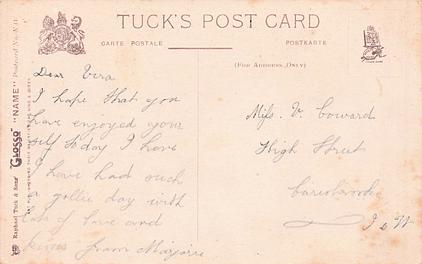 TUCK'S POST CARD
CARTE POSTALE
POSTKARTE
(FOR ADDRESS ONLY)
Raphael Tuck & Sons' "GLOSSO" "NAME" Postcard No.
Dear Vera
I hope that you
have enjoyed your
self to day I have
I have had such
a jollie day with
lots of love and
kisses from Marjorie
Miss. V. Coward
High Street
Carisbrooke
I o W